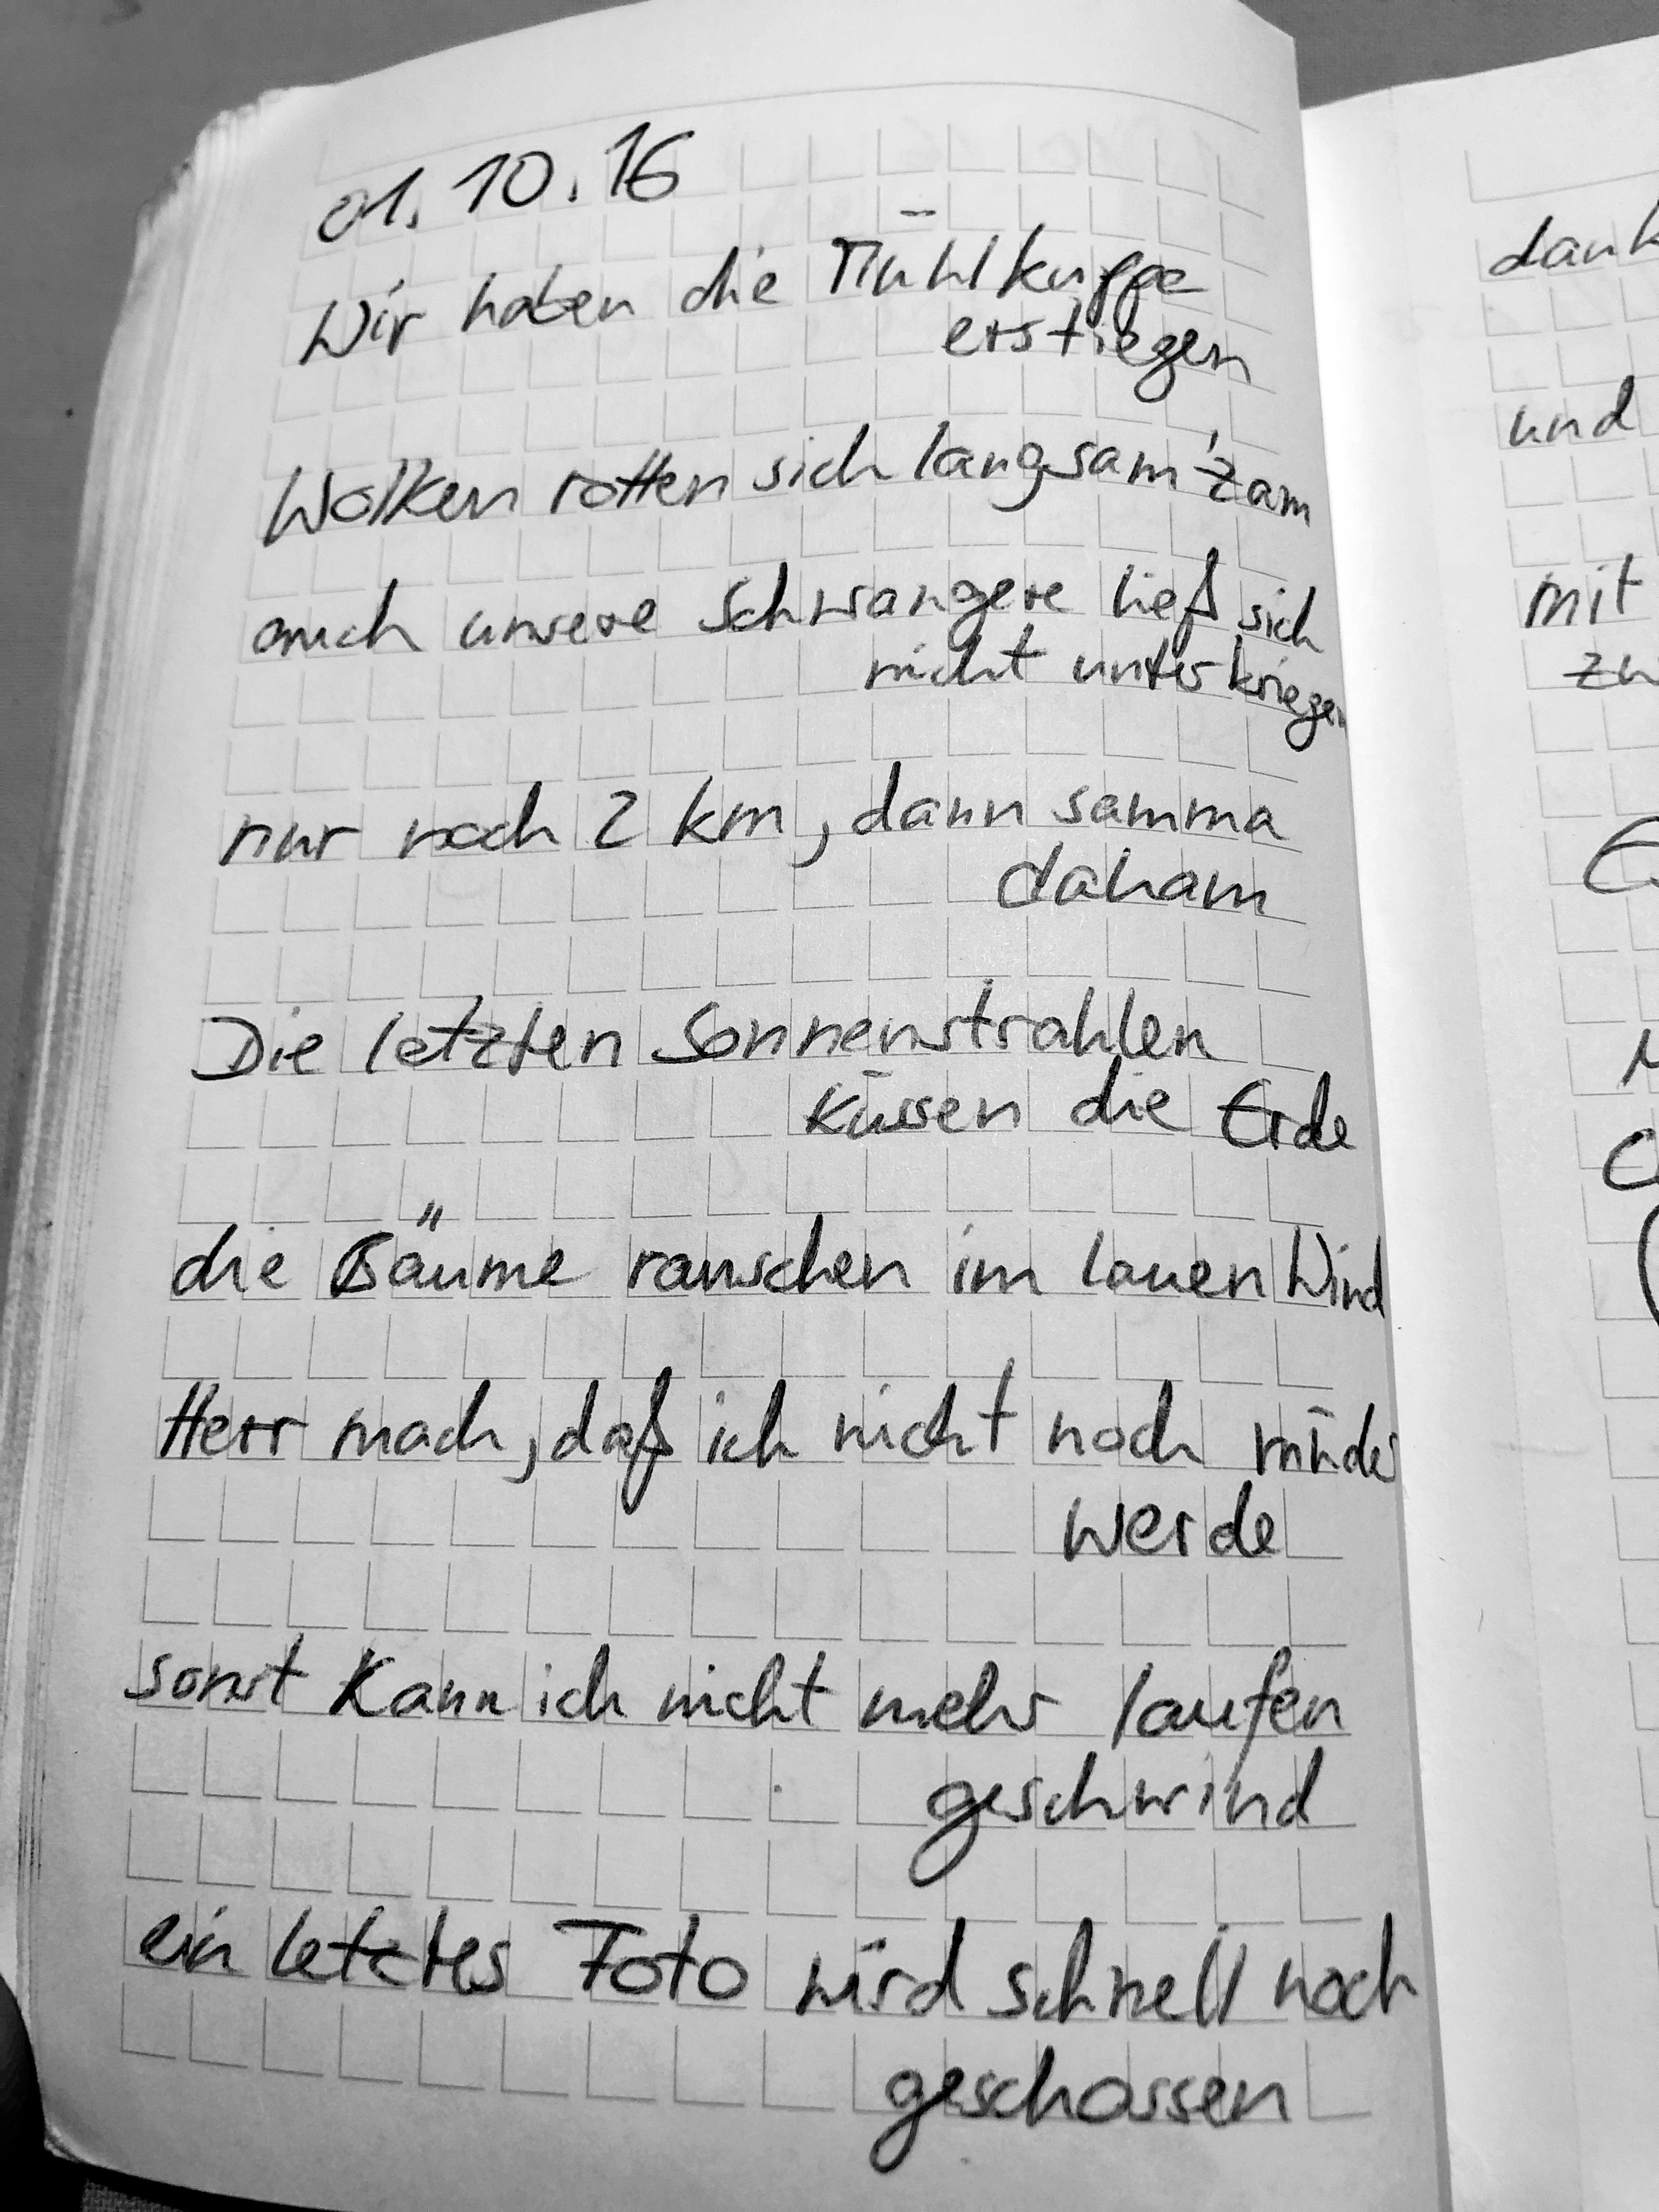 01.10.16
Wir haben die Mühlkuppe
erstiegen
Wolken rotten sich langsam 'zam
auch unsere Schwangere ließ sich
nicht unterkriegen
nur noch 2 km, dann samma
daham
Die letzten Sonnenstrahlen
küssen die Erde
die Bäume rauschen im lauen Wind
Herr mach, daß ich nicht noch müder
werde
sonst kann ich nicht mehr laufen
geschwind
ein letztes Foto wird schnell noch
geschossen
und
mit